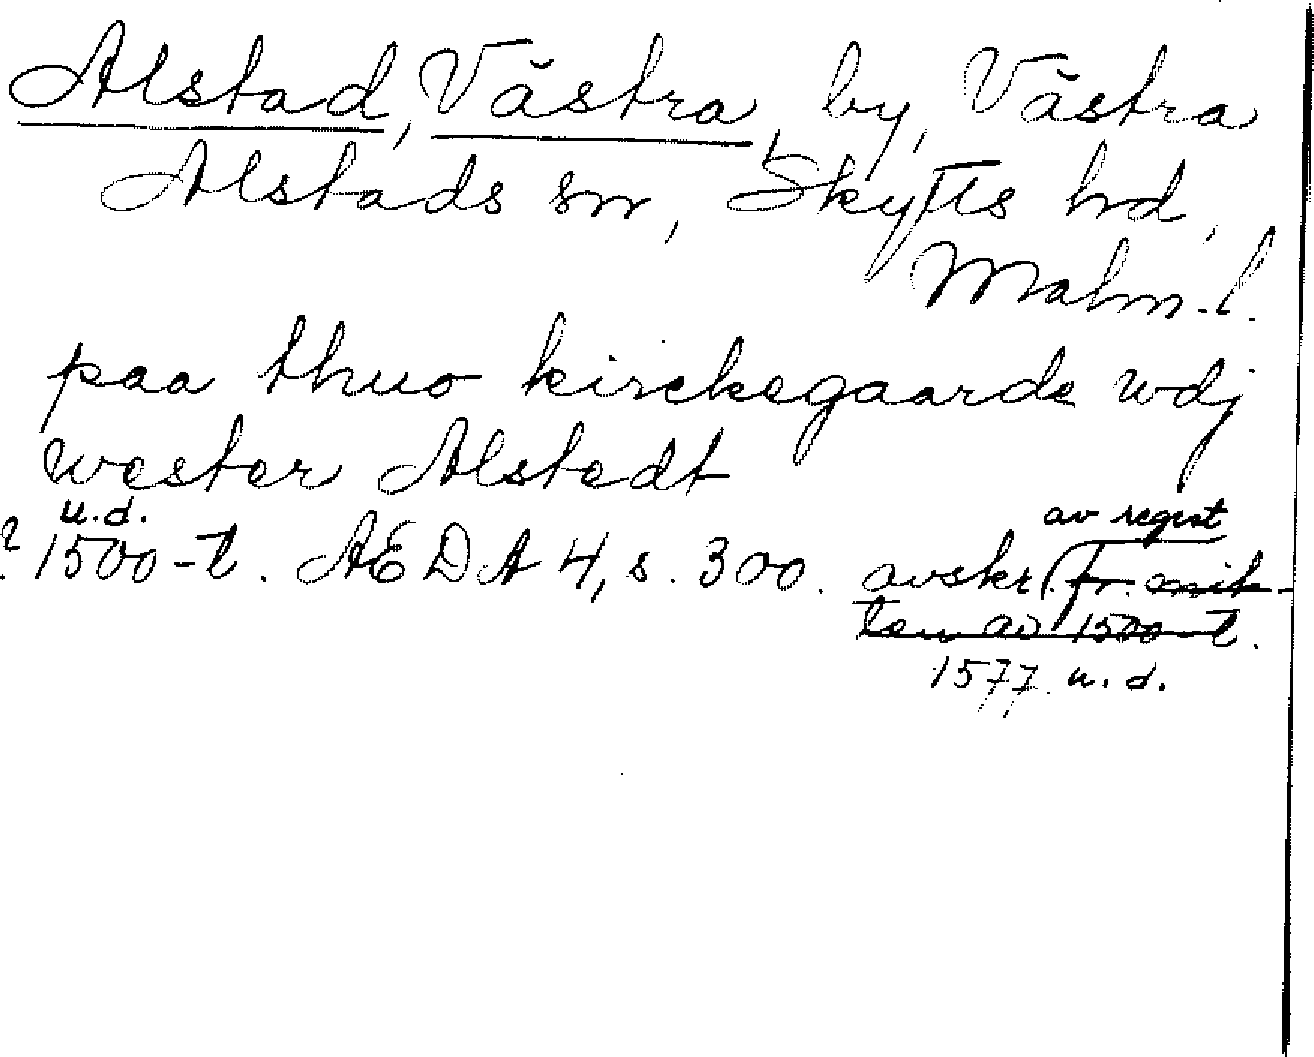 Alstad, Västra, by, Västra
Alstads sn, Skytts hd,
Malm.l.
paa thuo kirckegaarde wdj
wester Alstedt
u.d.
av regist
? 1500-t. AEDA 4, s. 300. avskr. fr. mit-
ten av 1500-t.
1577 u.d.